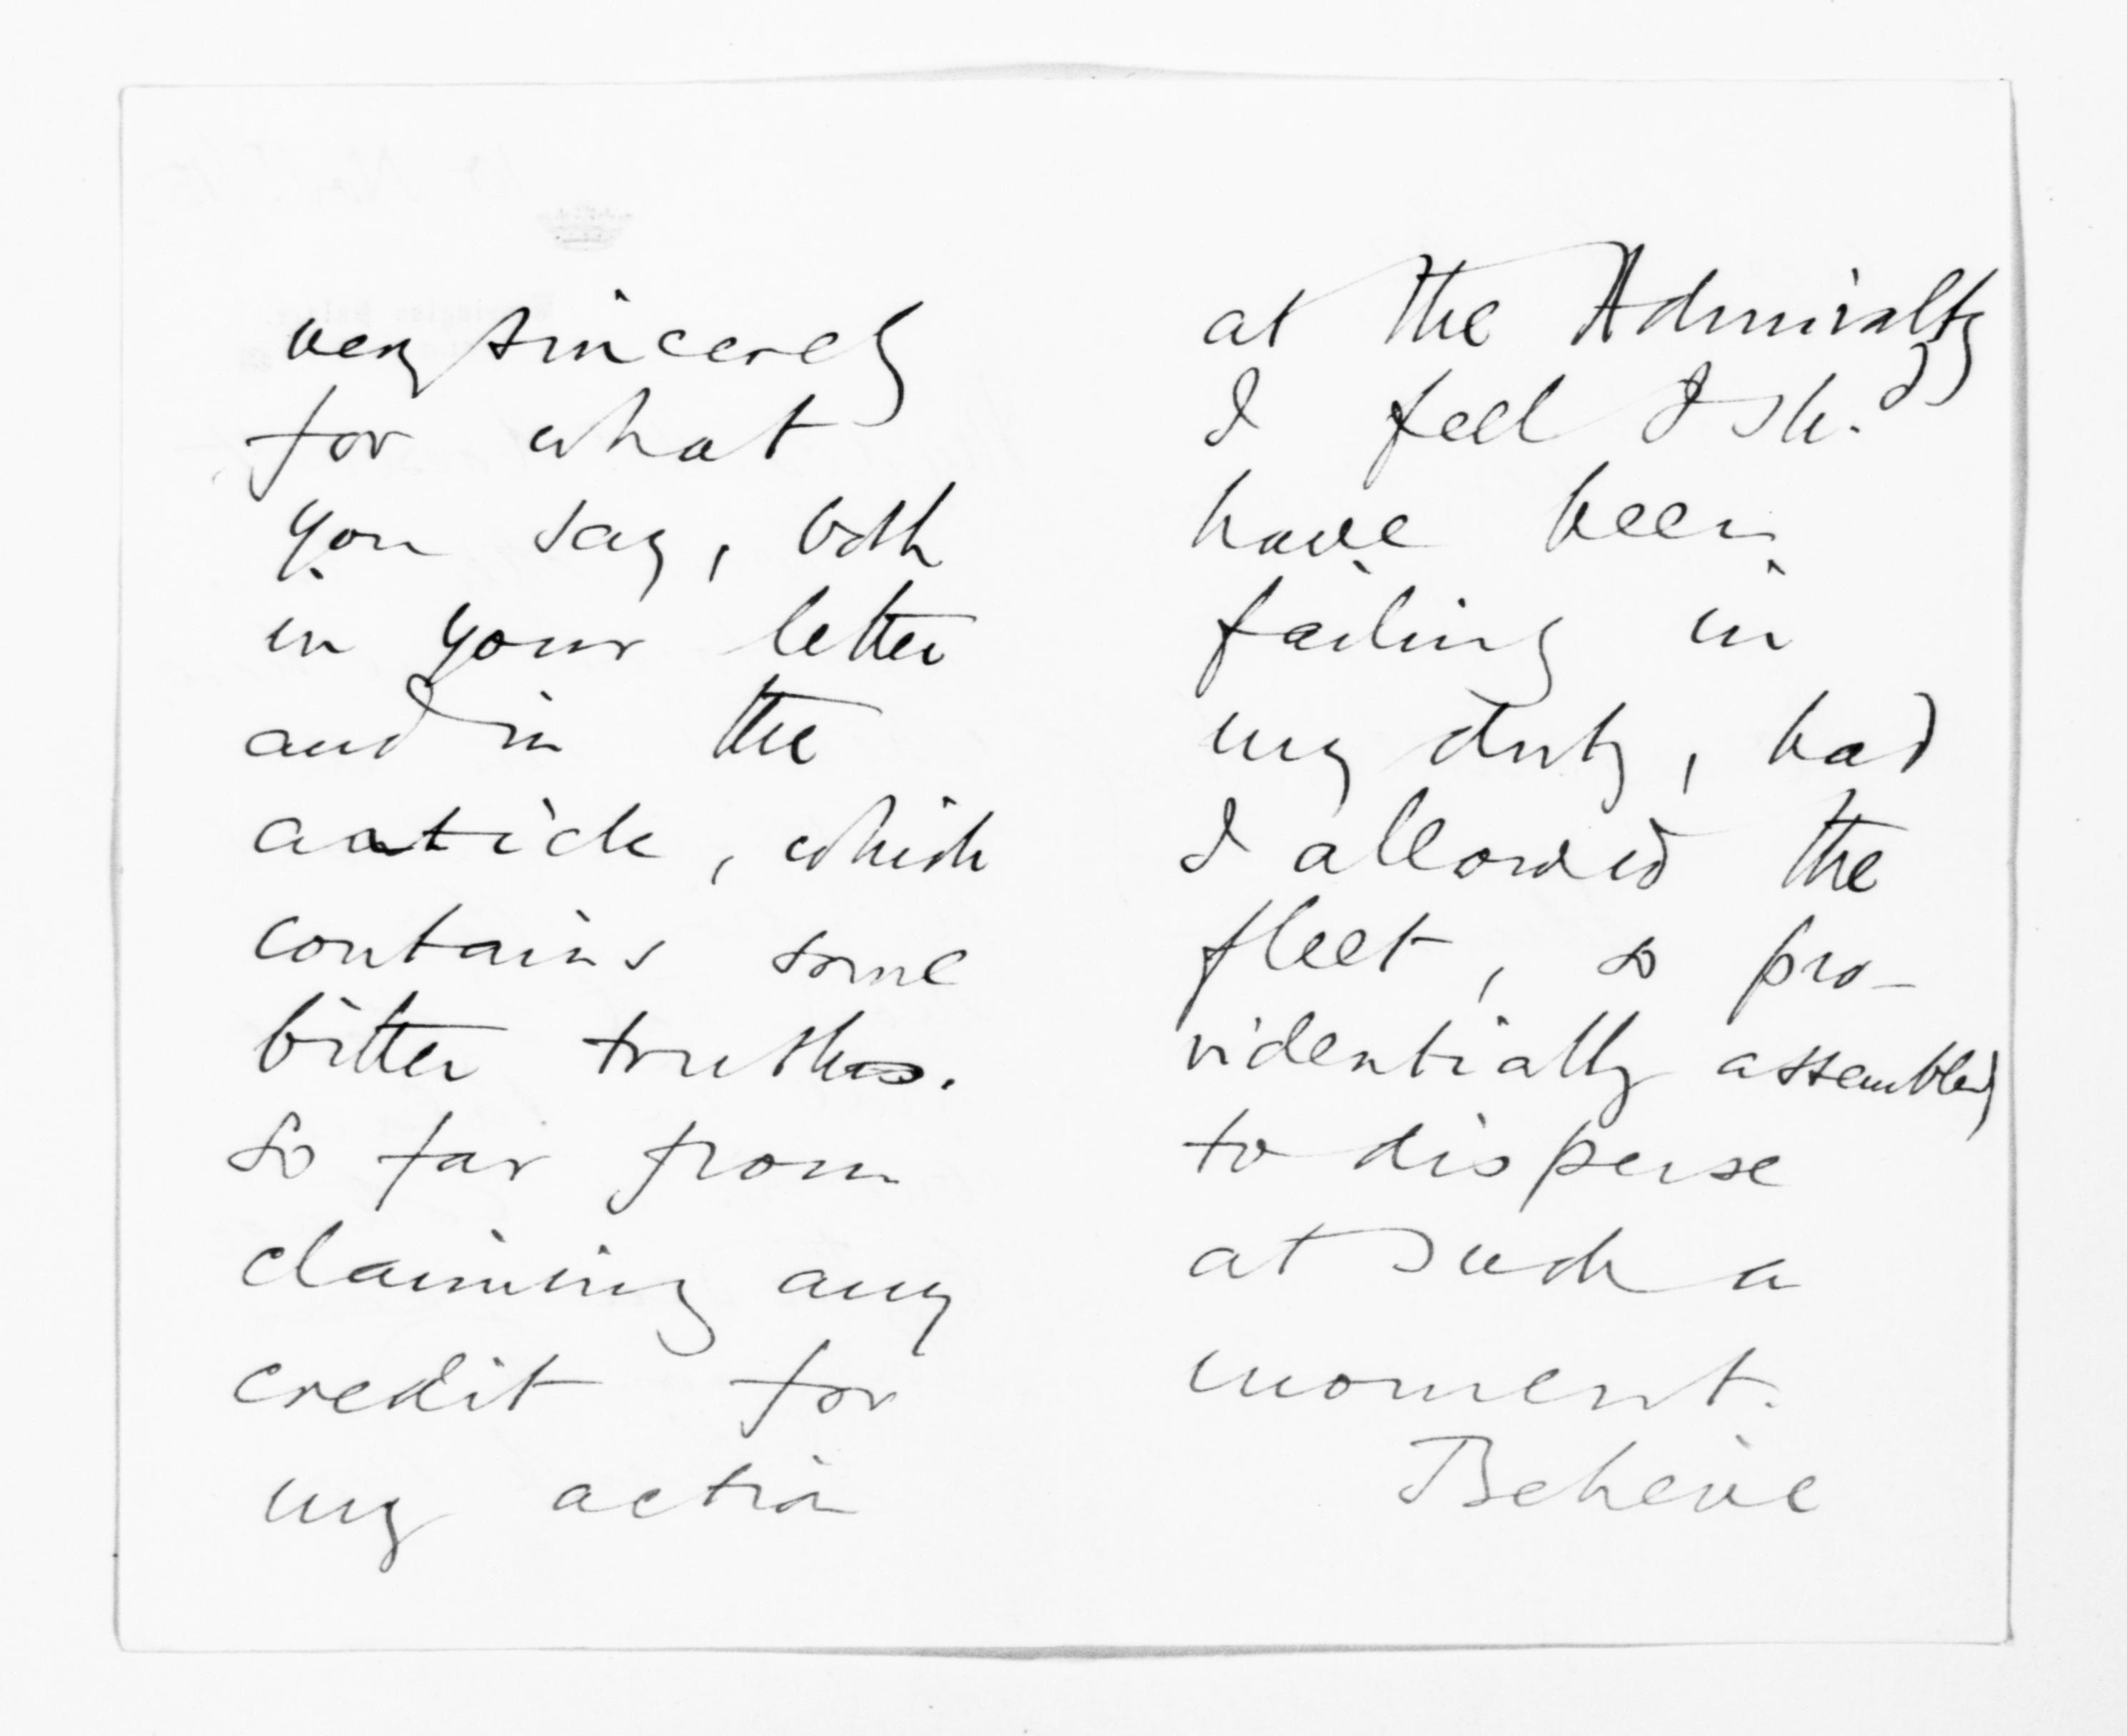 very sincerely
for what
you say, both
in your letter
and in the
article, which
contains some
bitter truths.
So far from
claiming any
credit for
my action
at the Admiralty
I feel I sh.d
have been
failing in
my duty, had
I allowed the
fleet, so pro-
videntially assembled
to disperse
at such a
moment.
Believe